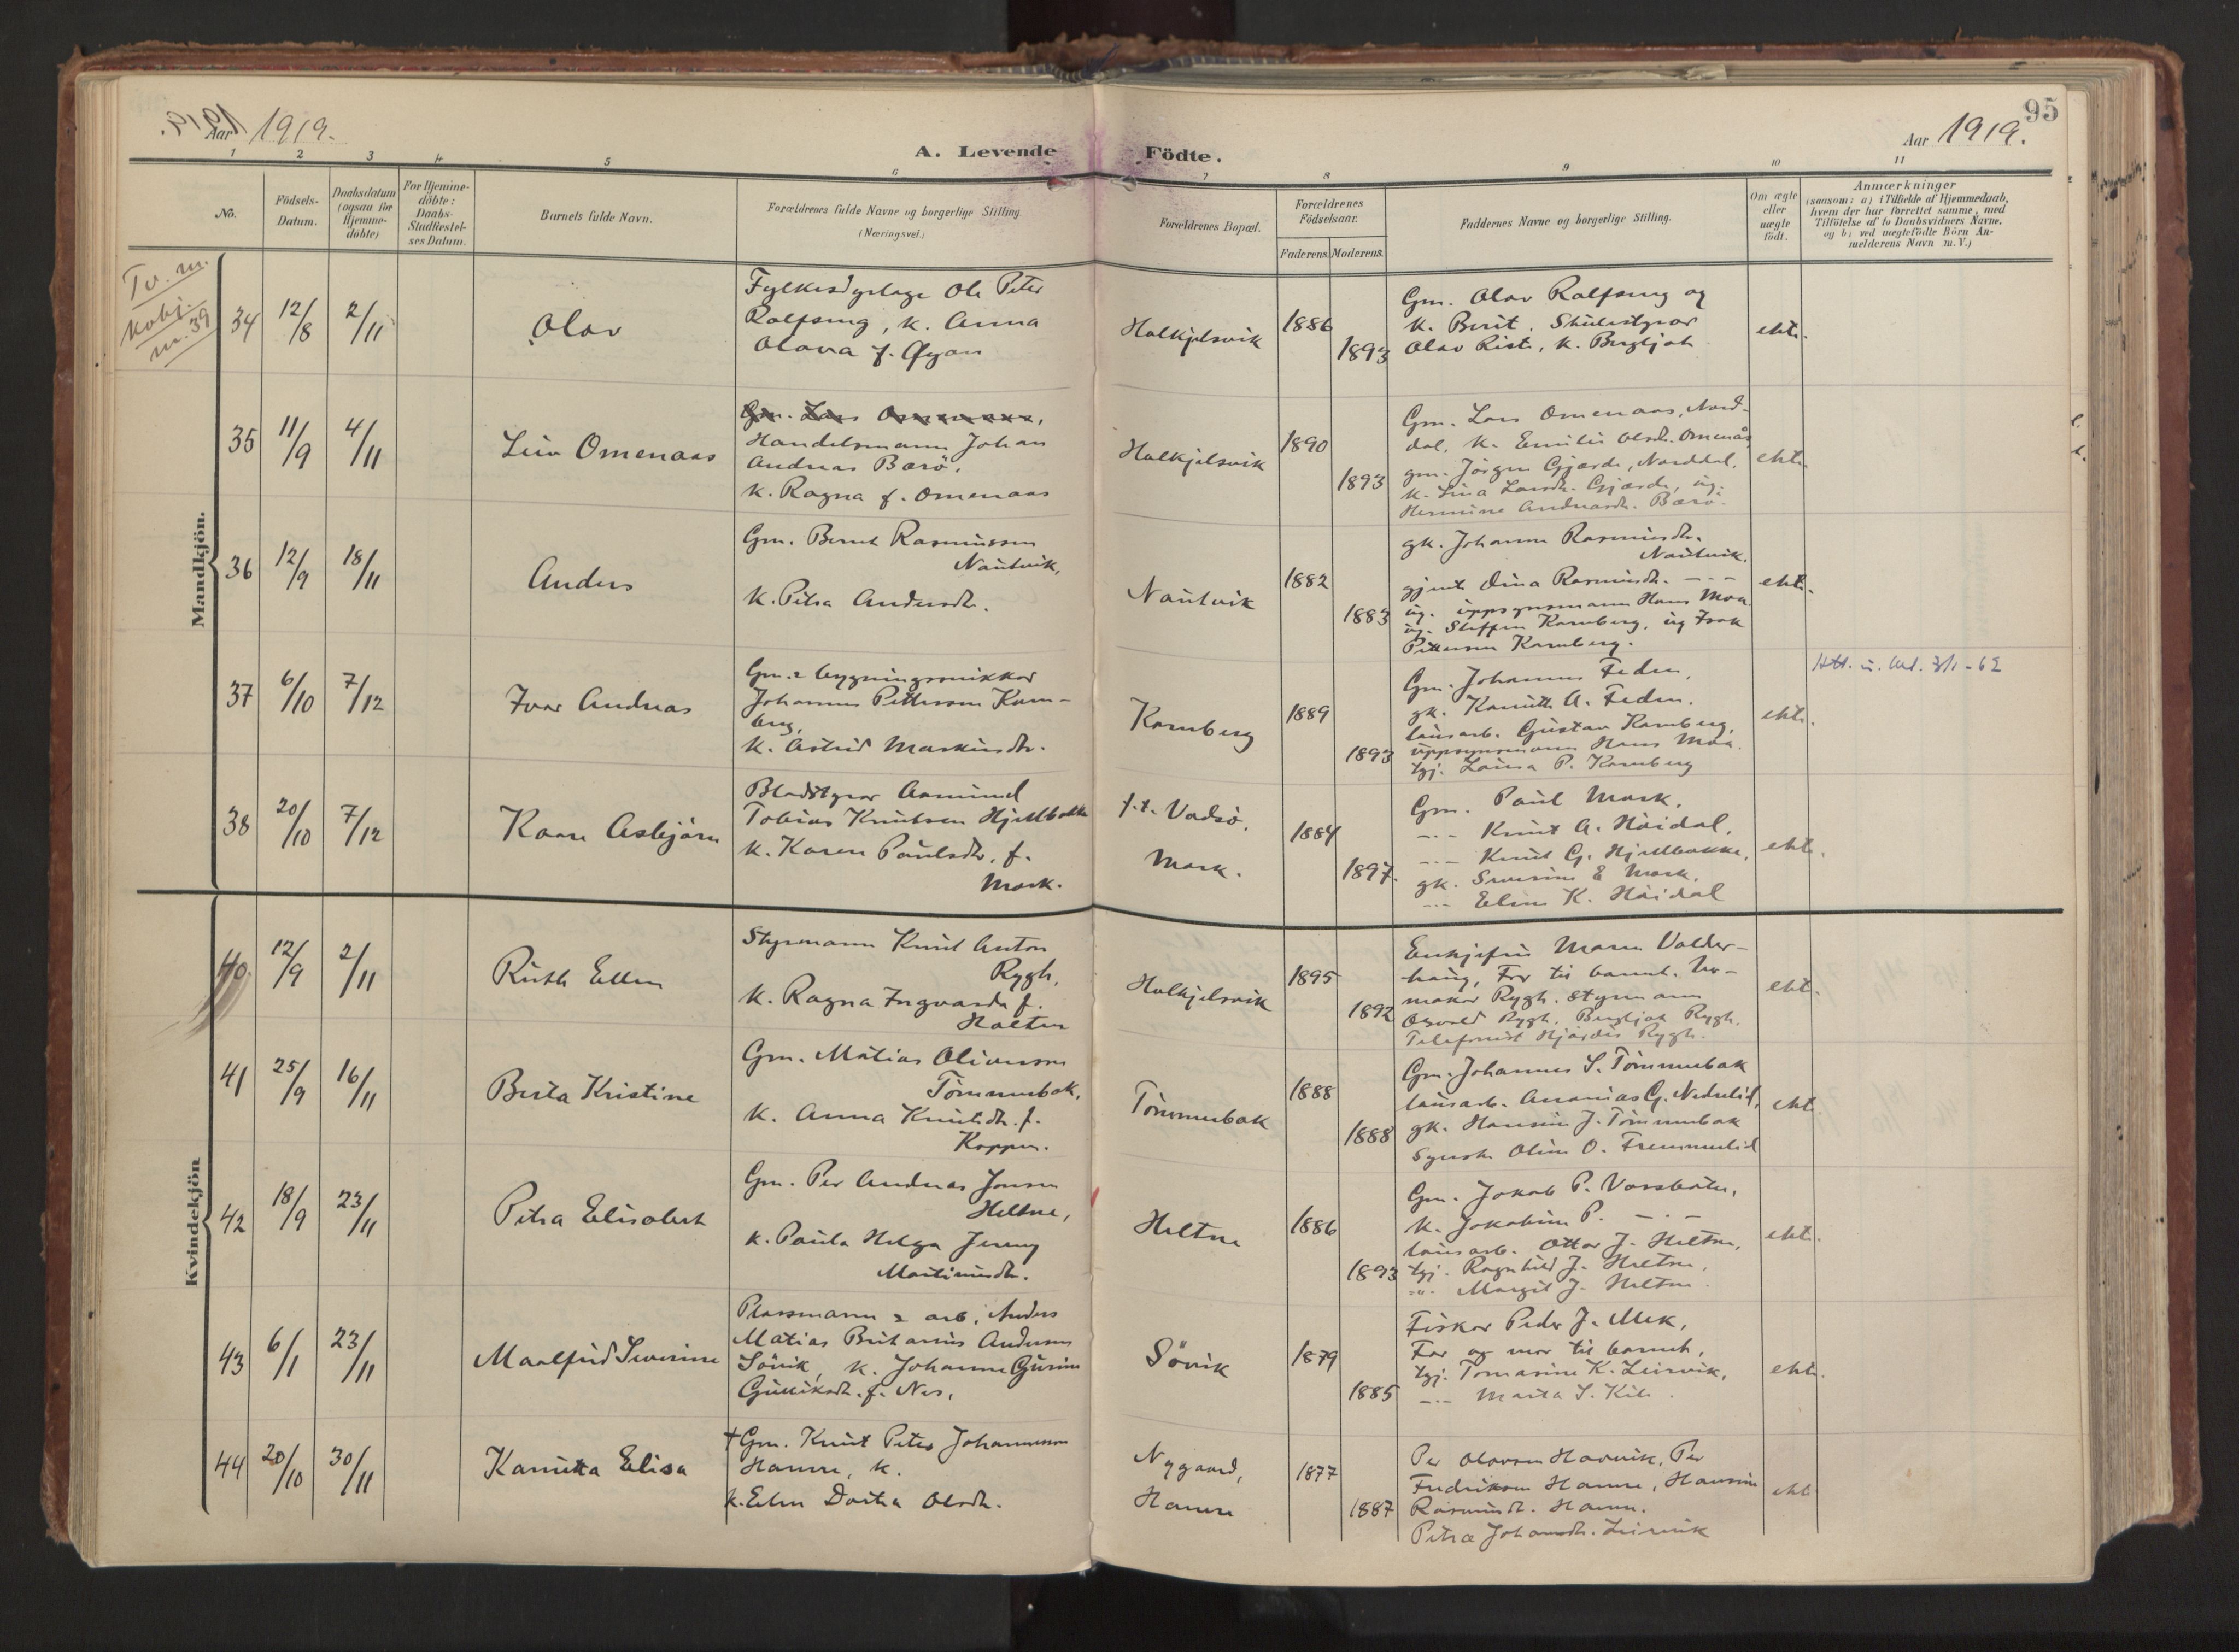 95
Aar 1919.
Aar 1919.
A. Levende Födte.
1 2 3 4 5 6 7 8 9 10 11
No.
Födsels-
Datum.
Daabsdatum
(ogsaa for
Hjemme-
döbte)
For Hjemme-
döbte:
Daabs-
Stadfæstel-
ses Datum.
Barnets fulde Navn.
Forældrenes fulde Navne og borgerlige Stilling.
(Næringsvei.)
Forældrenes Bopæl.
Forældrenes
Födselsaar.
Faderens. Moderens.
Faddernes Navne og borgerlige Stilling.
Om ægte
eller
uægte
födt.
Anmærkninger
(saasom: a) i Tilfælde af Hjemmedaab,
hvem der har forrettet samme, med
Tilföielse af to Daabsvidners Navne,
og b) ved uægtefödte Börn An-
melderens Navn m. V.)
Mandkjön.
Tv. m.
kvkj.
nr. 39
34
12/8
2/11
Olav
Ole Peter
Ralfsnes, k. Anna
Olava f. Øyen
Holkjelsvik
1886
1893
Gm. Olav Ralfsnes og
k. Berit. Skulestyrar
Olav Riste, k. Bergljot
ekte.
35
11/9
4/11
Leiv Omenaas
Gm. Lars Omenaas,
Handelsmann Johan
Andreas Barö,
k. Ragna f. Omenaas
Holkjelsvik
1890
1893
Gm. Lars Omenaas, Nord-
dal, k. Emilie Olsdr. Omenås
gm. Jörgen Gjærde, Norddal,
k. Lina Larsdr. Gjærde, ug.
Hermine Andreasdr. Barö.
ekte.
36
12/9
18/11
Anders
Gm. Bernt Rasmussen
Nautvik,
k. Petra Andersdr.
Nautvik
1882
1883
gk. Johanne Rasmusdr.
Nautvik.
gjent Dina Rasmusdr. - - -
ug. uppsynsmann Hans Moa
ug. Steffen Kornberg, ug Isak
Pettersen Kornberg.
ekte.
37
6/10
7/12
Ivar Andreas
Gm. & bygningssnikkar
Johannes Pettersen Korn-
berg,
k. Astrid Markusdr.
Kornberg
1889
1893
Gm. Johannes Feden,
gk. Kanutte A. Feden.
lausarb. Gustav Kornberg,
uppsynsmann Hans Moa.
tgj. Laura P. Kornberg
ekte.
Att. u. 3/1-62
38
20/10
7/12
Kaare Asbjörn
Bladstyrar Aamund
Tobias Knutsen Hjellbakke
k. Karen Paulsdr. f.
Mork.
f.t. Vadsö.
Mork.
1884
1897.
Gm. Paul Mork.
-"- Knut A. Höidal,
-"- Knut G. Hjellbakke,
gk. Severine E Mork.
-"- Eline K. Höidal
ekte.
Kvindekjön
40
12/9
2/11
Ruth Ellen
Styrmann Knut Anton
Rygh,
k. Ragna Ingvarda f.
Holten
Holkjelsvik
1895
1892
Enkjefru Maren Valder-
haug, Far til barnet. Ur-
makar Rygh. Styrmann
Osvald Rygh, Bergljot Rygh.
Telefonist Hjördis Rygh.
ekte.
41
25/9
16/11
Berta Kristine
Gm. Matias Oliversen
Tömmerbak,
k. Anna Knutsdr. f.
Koppen.
Tömmerbak
1888
1888
Gm. Johannes S. Tömmerbak
lausarb. Ananias G. Nedrelid,
gk. Hansine J. Tömmerbak
Syerske Oline O. Fremmerlid
ekte
42
18/9
23/11
Petra Elisabet
Gm. Per Andreas Jonsen
Heltne,
k. Paula Helga Jenny
Martinusdr.
Heltne
1886
1893
Gm. Jakob P. Vassbotn,
k. Jakobine P. -"-
lausarb. Ottar J. Heltne,
tgj. Ragnhild J. Heltne,
-"- Margit J. Heltne.
ekte.
43
6/1
23/11
Maalfrid Severine
Plassmann & arb. Anders
Matias Britanius Andersen
Sövik, k. Johanne Gurine
Gulliksdr. f. Nes,
Sövik
1879
1885
Fiskar Peder J. Mek,
Far og mor til barnet,
tgj. Tomasine K. Leirvik,
-"- Marta S. Kile.
ekte.
44
20/10
30/11
Kanutta Elisa
†Gm. Knut Peter Johannessen
Hamre, k.
k. Elen Dortea Olsdr.
Nygaard,
Hamre
1877
1887
Per Olavsen Havnvik, Per
Fredriksen Hamre, Hansine
Rasmusdr. Hamre.
Petra Johansdr. Leirvik
ekte